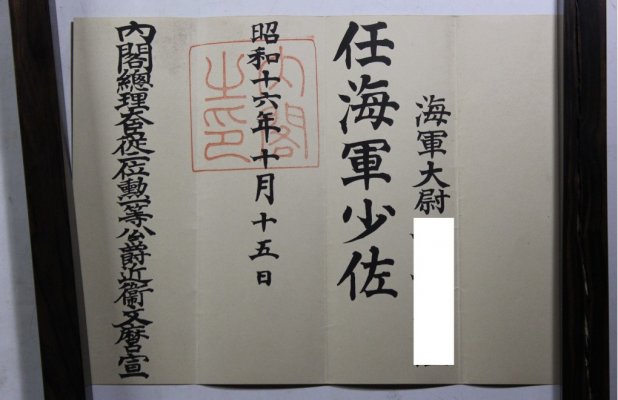 海軍大尉
任海軍少佐
昭和十六年十月十五日
內閣之印
內閣總理大臣從二位勲一等公爵近衞文麿宣